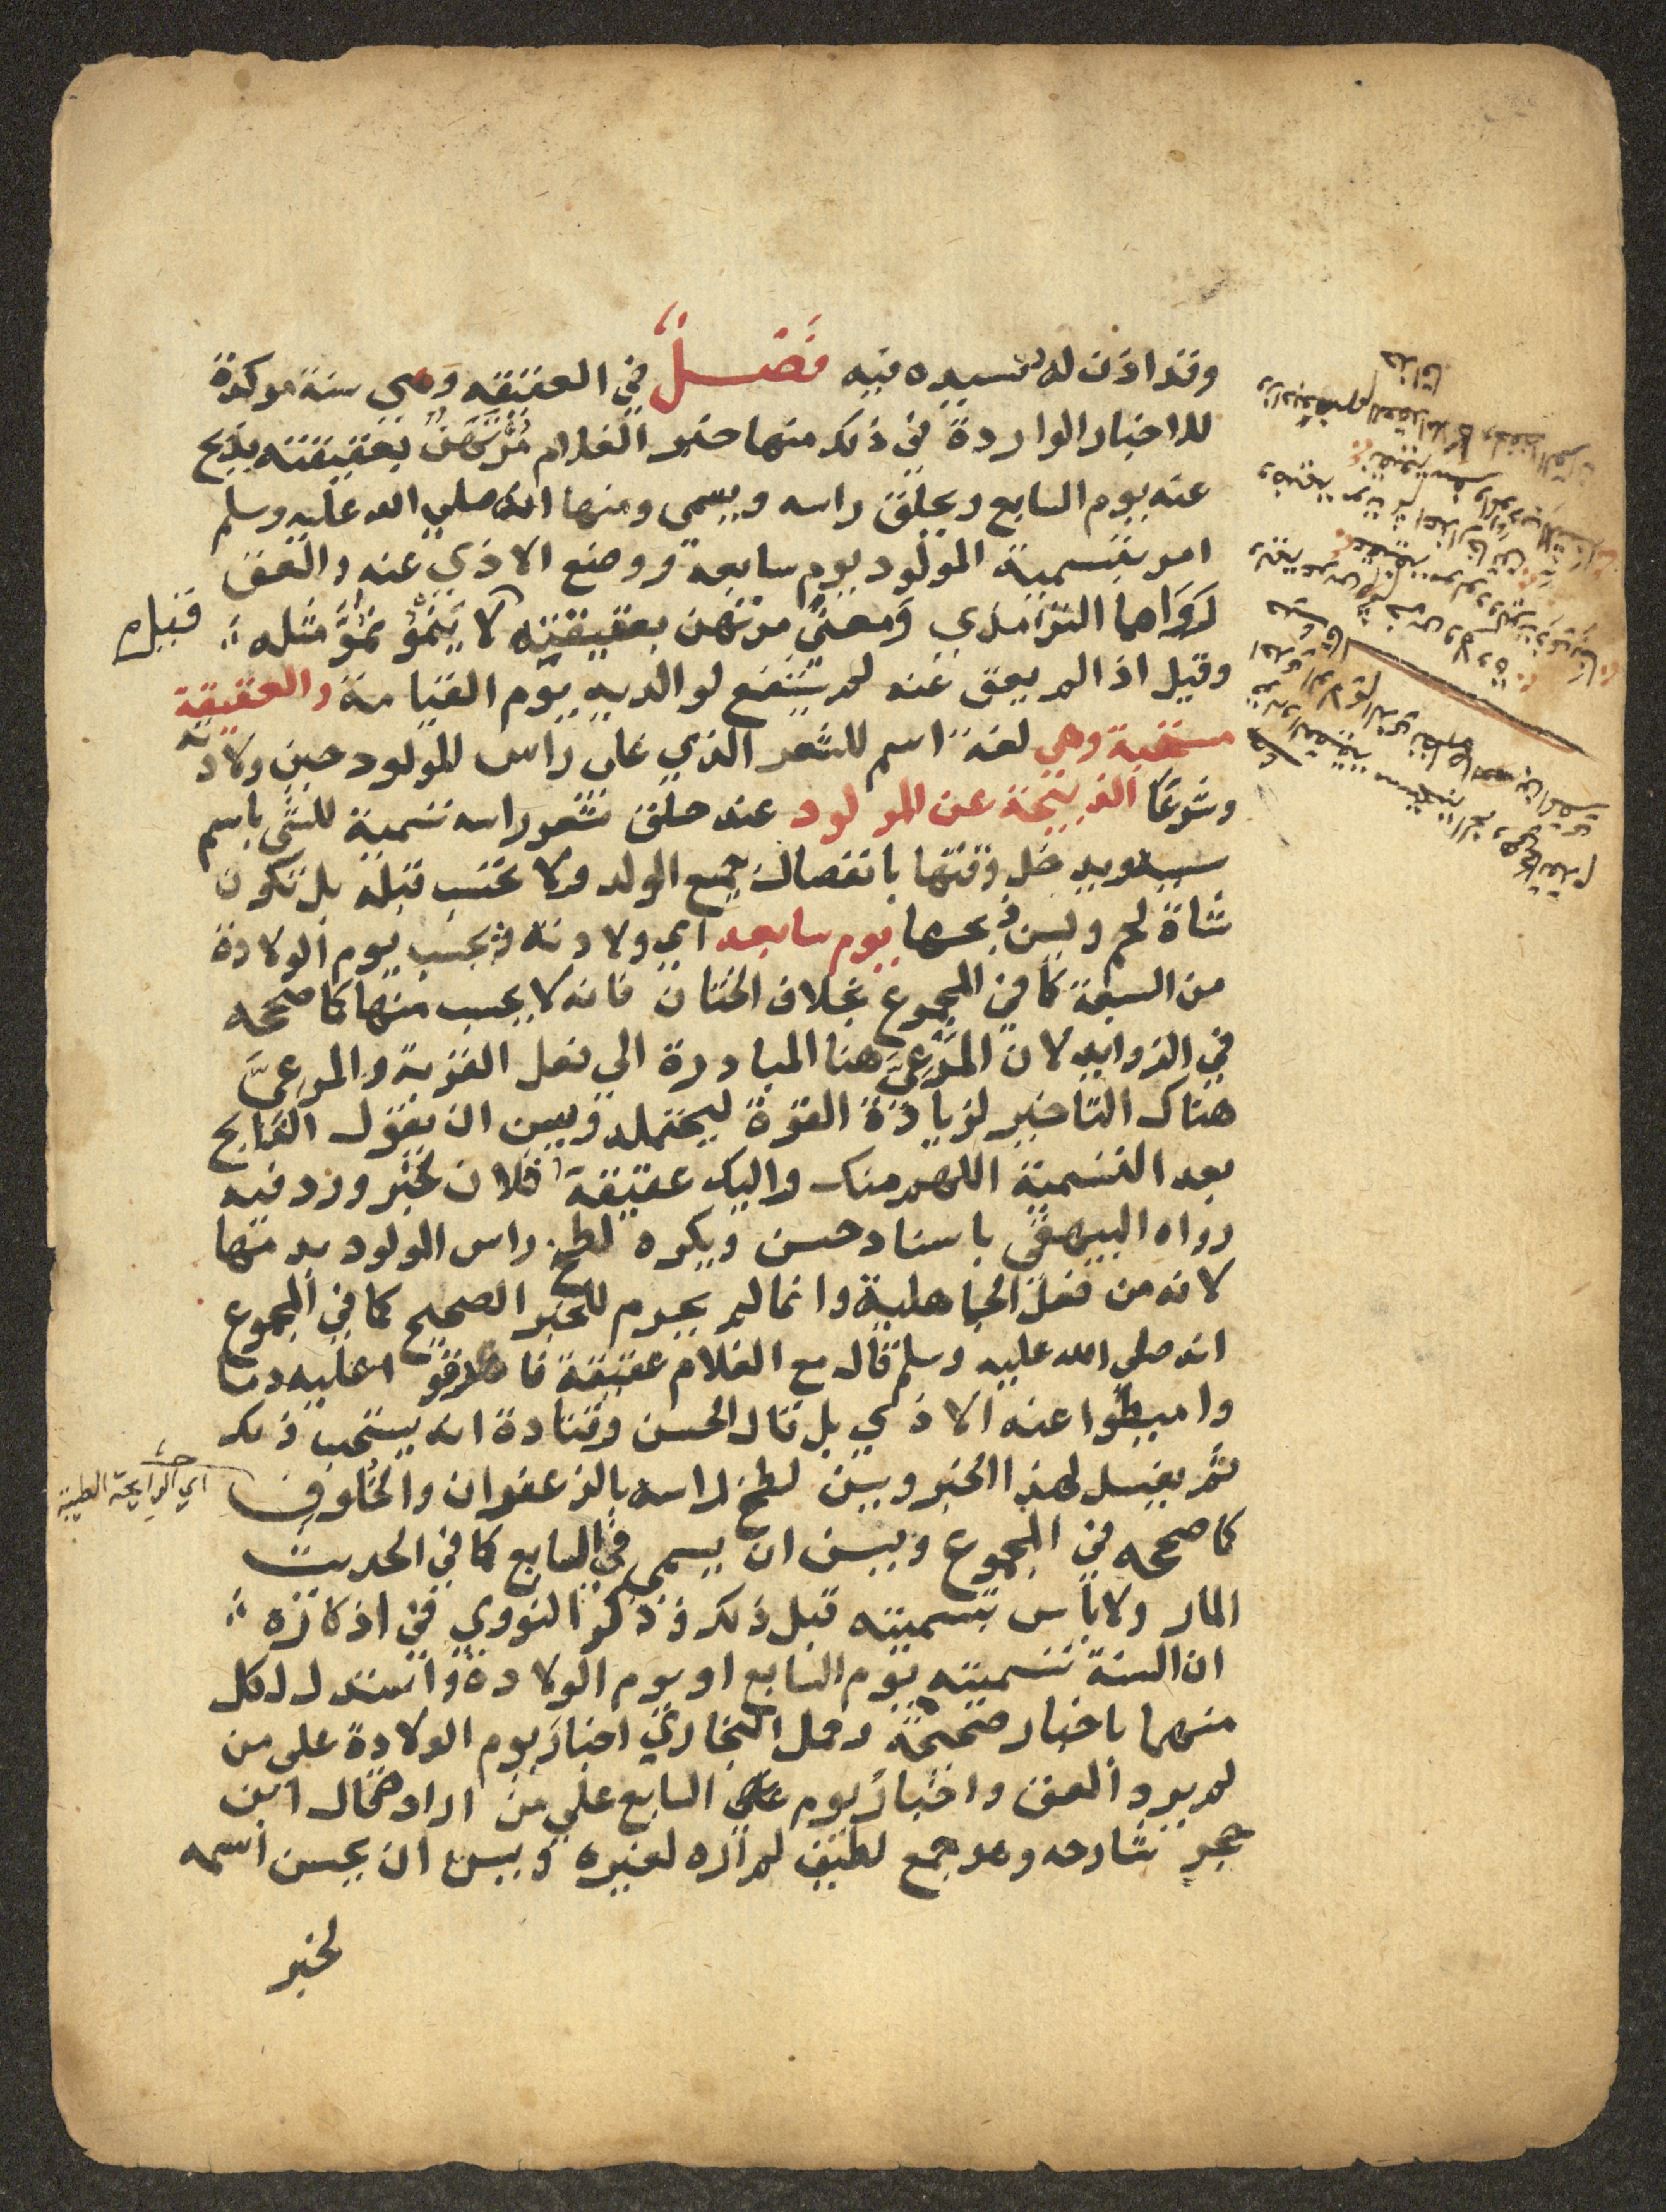 وقد اذن له سيده فيه فَصْلٌ في العقيقه وهي سنة موكدة
للاخبار الواردة في ذلك منها خبر الغلام مُرْتَهَنٌ بعقيقته يذبح
عنه يوم السابع ويحلق راسه ويسمى ومنها انه صلي الله عليه وسلم
امر بتسمية المولود يوم سابعه ووضع الاذي عنه والعق
رَوَاهما الترمذي ومعنى مرتهن بعقيقته لا يَنْمُو نُمُوَّ مثله
قيل
وقيل اذا لم يعق عنه لم يشفع لوالديه يوم القيامة والعقيقة
مستحبة وهي لغة اسم للشعر الذي على راس المولود حين ولادته
وشرعًا الذبيحة عن المولود عند حلق شعر راسه تسمية للشي باسم
سببه ويدخل وقتها بانفصال جميع الولد ولا تحسب قبله بل تكون
شاة لحم ويسن ذبحها يوم سابعه اي ولادته ويحسب يوم الولادة
من السبعة كما في المجموع بخلاف الختان فانه لا يحسب منها كما صححه
في الزوايد لان المَرْعِيَّ هنا المبادرة الي فعل القربة والمرعيَّ
هناك التاخير لزيادة القوة ليحتمله ويسن ان يقول الذابح
بعد التسمية اللهم منك واليك عقيقة فلان لخبر ورد فيه
رواه البيهقي باسناد حسن ويكره لطخ راس المولود بدمها
لانه من فعل الجاهلية وانما لم يحرم للخبر الصحيح كما في المجموع
انه صلي الله عليه وسلم قال مع الغلام عقيقة فاهرقوا عليه دما
واميطوا عنه الاذي بل قال الحسن وقتادة انه يستحب ذلك
ثم يغسل لهذا الخبر ويسن لطخ راسه بالزعفران والخَلُوق
اي الرايحة الطيبة
كما صححه في المجموع ويسن ان يسمى في السابع كما في الحديث
المار ولا باس بتسميته قبل ذلك وذكر النووي في اذكاره
ان السنة تسميته يوم السابع او يوم الولادة واستدل لكل
منهما باخبار صحيحة وحمل البخاري اخبار يوم الولادة على من
لم يرد العق واخبار يوم السابع علي من اراده قال ابن
حجر شارحه وهو جمع لطيف لم اره لغيره ويسن ان يحسن اسمه
لخبر